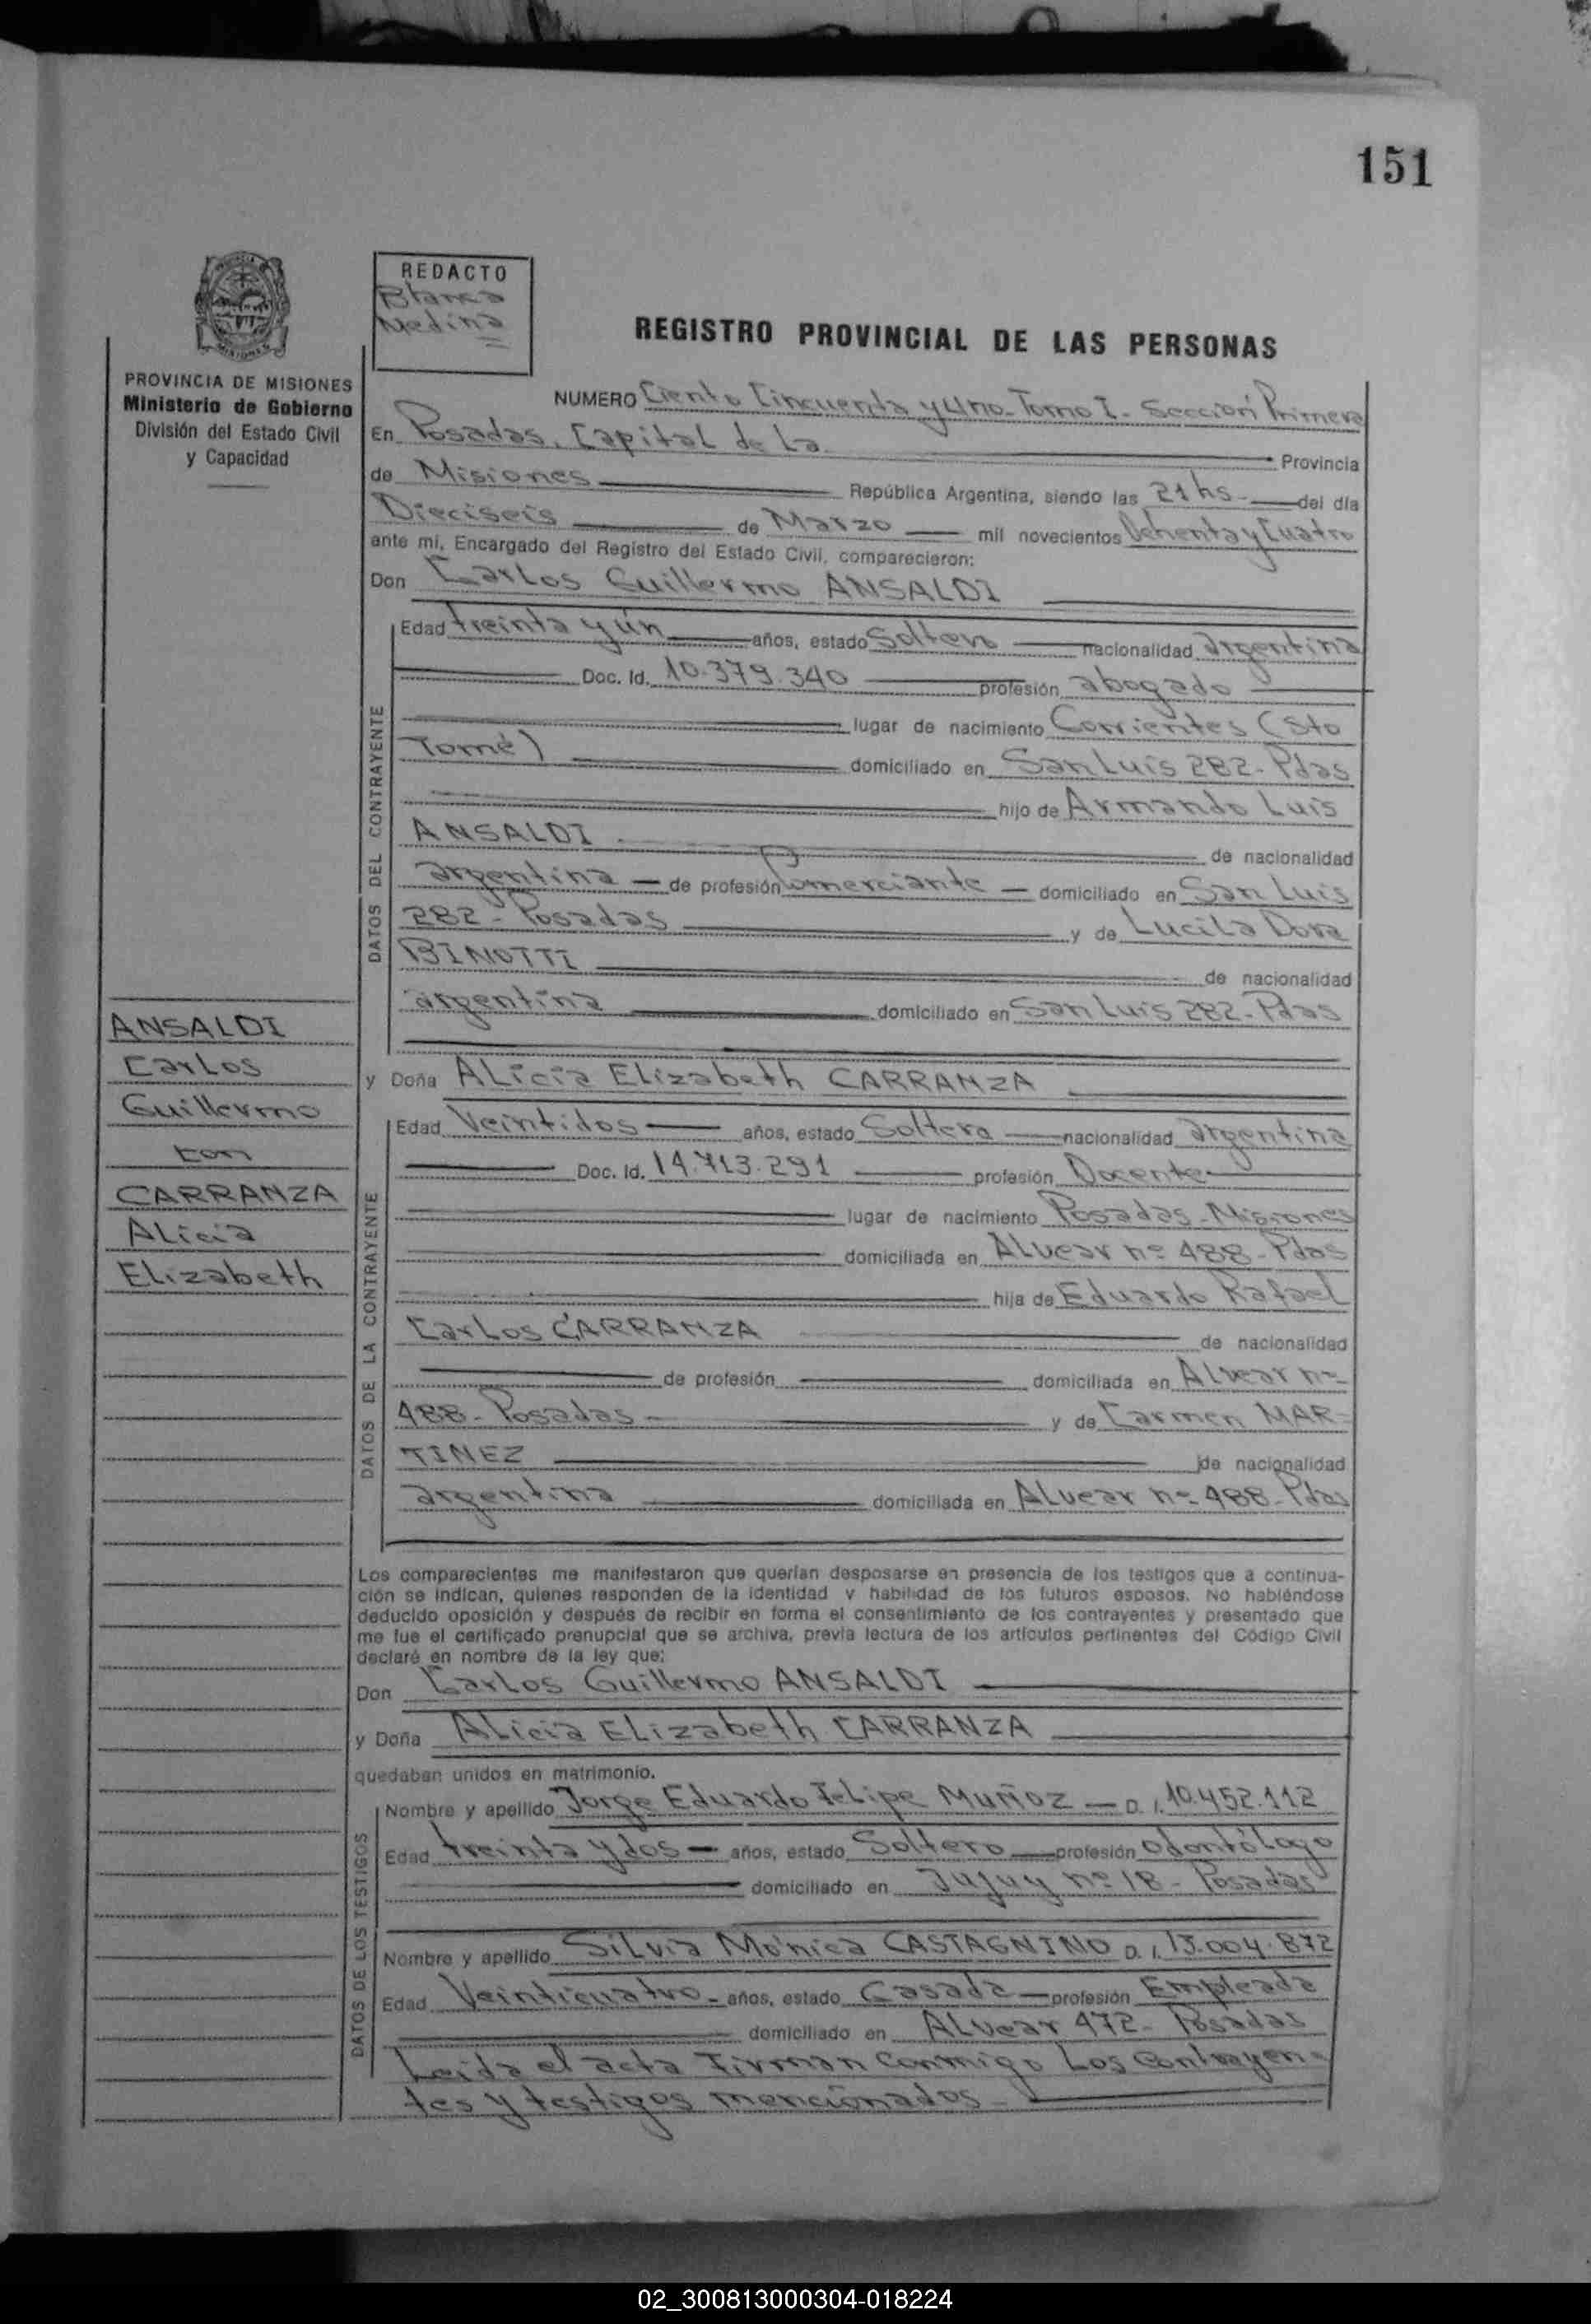 151
REDACTO
Blanca
Medina
REGISTRO PROVINCIAL DE LAS PERSONAS
PROVINCIA DE MISIONES
Ministerio de Gobierno
División del Estado Civil
y Capacidad
NUMERO Ciento Cincuenta y Uno - Tomo I - Sección Primera
En Posadas, Capital de La Provincia
de Misiones República Argentina, siendo las 21 hs - del día
Dieciseis de Marzo mil novecientos Ochenta y Cuatro
ante mí, Encargado del Registro del Estado Civil, comparecieron:
Don Carlos Guillermo ANSALDI
DATOS DEL CONTRAYENTE
Edad treinta y ún años, estado Soltero nacionalidad argentina
Doc. Id. 10.379.340 profesión abogado
lugar de nacimiento Corrientes (Sto
Tomé) domiciliado en San Luis 282 - Pdas
hijo de Armando Luis
ANSALDI de nacionalidad
argentina - de profesión Comerciante - domiciliado en San Luis
282 - Posadas y de Lucila Dora
BINOTTI de nacionalidad
argentina domiciliado en San Luis 282 - Pdas
ANSALDI
Carlos
Guillermo
con
CARRANZA
Alicia
Elizabeth
y Doña Alicia Elizabeth CARRANZA
DATOS DE LA CONTRAYENTE
Edad Veintidos años, estado Soltera nacionalidad argentina
Doc. Id. 14.713.291 profesión Docente
lugar de nacimiento Posadas - Misiones
domiciliada en Alvear nº 488 - Pdas
hija de Eduardo Rafael
Carlos CARRANZA de nacionalidad
de profesión domiciliada en Alvear nº
488 - Posadas - y de Carmen MAR-
TINEZ de nacionalidad
argentina domiciliada en Alvear nº 488 - Pdas
Los comparecientes me manifestaron que querían desposarse en presencia de los testigos que a continua-
ción se indican, quienes responden de la identidad y habilidad de los futuros esposos. No habiéndose
deducido oposición y después de recibir en forma el consentimiento de los contrayentes y presentado que
me fue el certificado prenupcial que se archiva, previa lectura de los artículos pertinentes del Código Civil
declaré en nombre de la ley que:
Don Carlos Guillermo ANSALDI
y Doña Alicia Elizabeth CARRANZA
quedaban unidos en matrimonio.
DATOS DE LOS TESTIGOS
Nombre y apellido Jorge Eduardo Felipe MUÑOZ - D. I. 10.452.112
Edad treinta y dos - años, estado Soltero profesión odontólogo
domiciliado en Jujuy nº 18 - Posadas
Nombre y apellido Silvia Mónica CASTAGNINO D. I. 13.004.872
Edad Veinticuatro - años, estado Casada profesión Empleada
domiciliado en Alvear 472 - Posadas
Leida el acta Firman conmigo Los Contrayen-
tes y testigos mencionados -
02_300813000304-018224